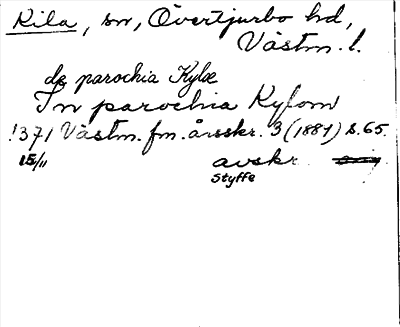 Kila, sn, Övertjurbo hd,
Västm. l.
de parochia Kylæ
In parochia Kylom
1371 Västm. fm. årsskr. 3 (1881) s. 65.
15/11 avskr.
Styffe